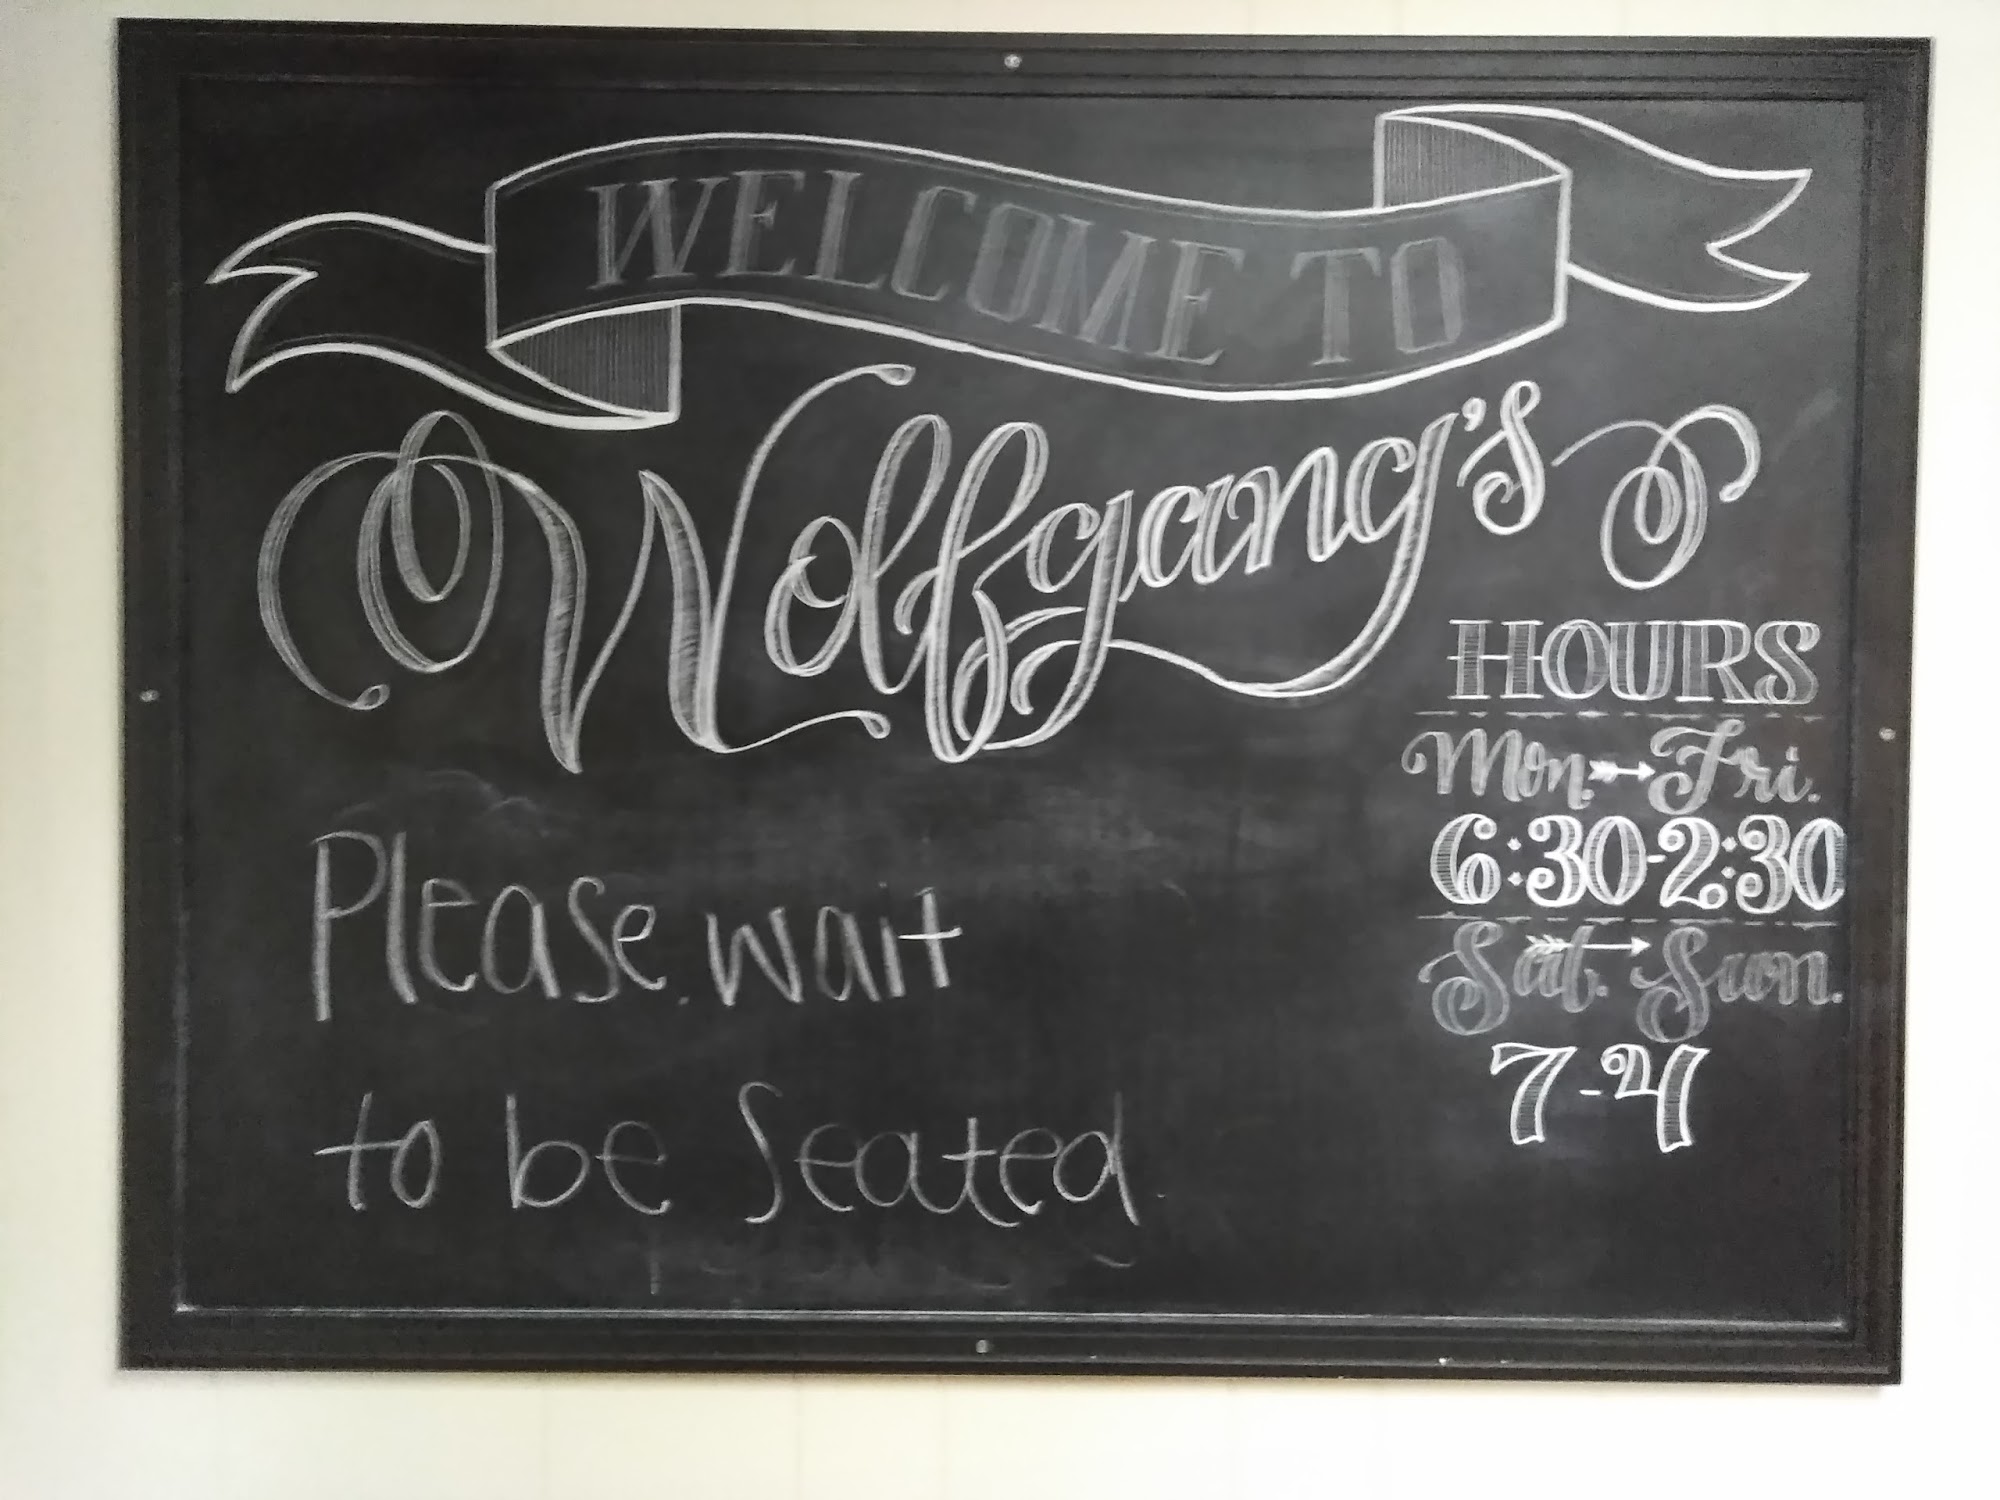 WELCOME TO
Wolfgang's
Please wait
to be seated.
HOURS
Mon. Fri.
6:30-2:30
Sat. Sun.
7-4